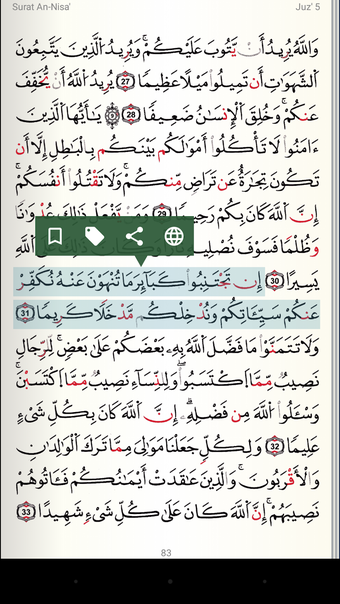 Surat An-Nisa' Juz' 5
وَٱللَّهُ يُرِيدُ أَن يَتُوبَ عَلَيْكُمْ وَيُرِيدُ ٱلَّذِينَ يَتَّبِعُونَ
ٱلشَّهَوَٰتِ أَن تَمِيلُوا۟ مَيْلًا عَظِيمًا ٢٧ يُرِيدُ ٱللَّهُ أَن يُخَفِّفَ
عَنكُمْ ۚ وَخُلِقَ ٱلْإِنسَٰنُ ضَعِيفًا ٢٨ يَٰٓأَيُّهَا ٱلَّذِينَ
ءَامَنُوا۟ لَا تَأْكُلُوٓا۟ أَمْوَٰلَكُم بَيْنَكُم بِٱلْبَٰطِلِ إِلَّآ أَن
تَكُونَ تِجَٰرَةً عَن تَرَاضٍ مِّنكُمْ ۚ وَلَا تَقْتُلُوٓا۟ أَنفُسَكُمْ ۚ
إِنَّ ٱللَّهَ كَانَ بِكُمْ رَحِيمًا ٢٩ وَمَن يَفْعَلْ ذَٰلِكَ عُدْوَٰنًا
وَظُلْمًا فَسَوْفَ نُصْلِيهِ ٱللَّهِ
يَسِيرًا ٣٠ إِن تَجْتَنِبُوا۟ كَبَآئِرَ مَا تُنْهَوْنَ عَنْهُ نُكَفِّرْ
عَنكُمْ سَيِّـَٔاتِكُمْ وَنُدْخِلْكُم مُّدْخَلًا كَرِيمًا ٣١
وَلَا تَتَمَنَّوْا۟ مَا فَضَّلَ ٱللَّهُ بِهِۦ بَعْضَكُمْ عَلَىٰ بَعْضٍ ۚ لِّلرِّجَالِ
نَصِيبٌ مِّمَّا ٱكْتَسَبُوا۟ ۖ وَلِلنِّسَآءِ نَصِيبٌ مِّمَّا ٱكْتَسَبْنَ ۚ
وَسْـَٔلُوا۟ ٱللَّهَ مِن فَضْلِهِۦٓ ۗ إِنَّ ٱللَّهَ كَانَ بِكُلِّ شَىْءٍ
عَلِيمًا ٣٢ وَلِكُلٍّ جَعَلْنَا مَوَٰلِىَ مِمَّا تَرَكَ ٱلْوَٰلِدَانِ
وَٱلْأَقْرَبُونَ ۚ وَٱلَّذِينَ عَقَدَتْ أَيْمَٰنُكُمْ فَـَٔاتُوهُمْ
نَصِيبَهُمْ ۚ إِنَّ ٱللَّهَ كَانَ عَلَىٰ كُلِّ شَىْءٍ شَهِيدًا ٣٣
83